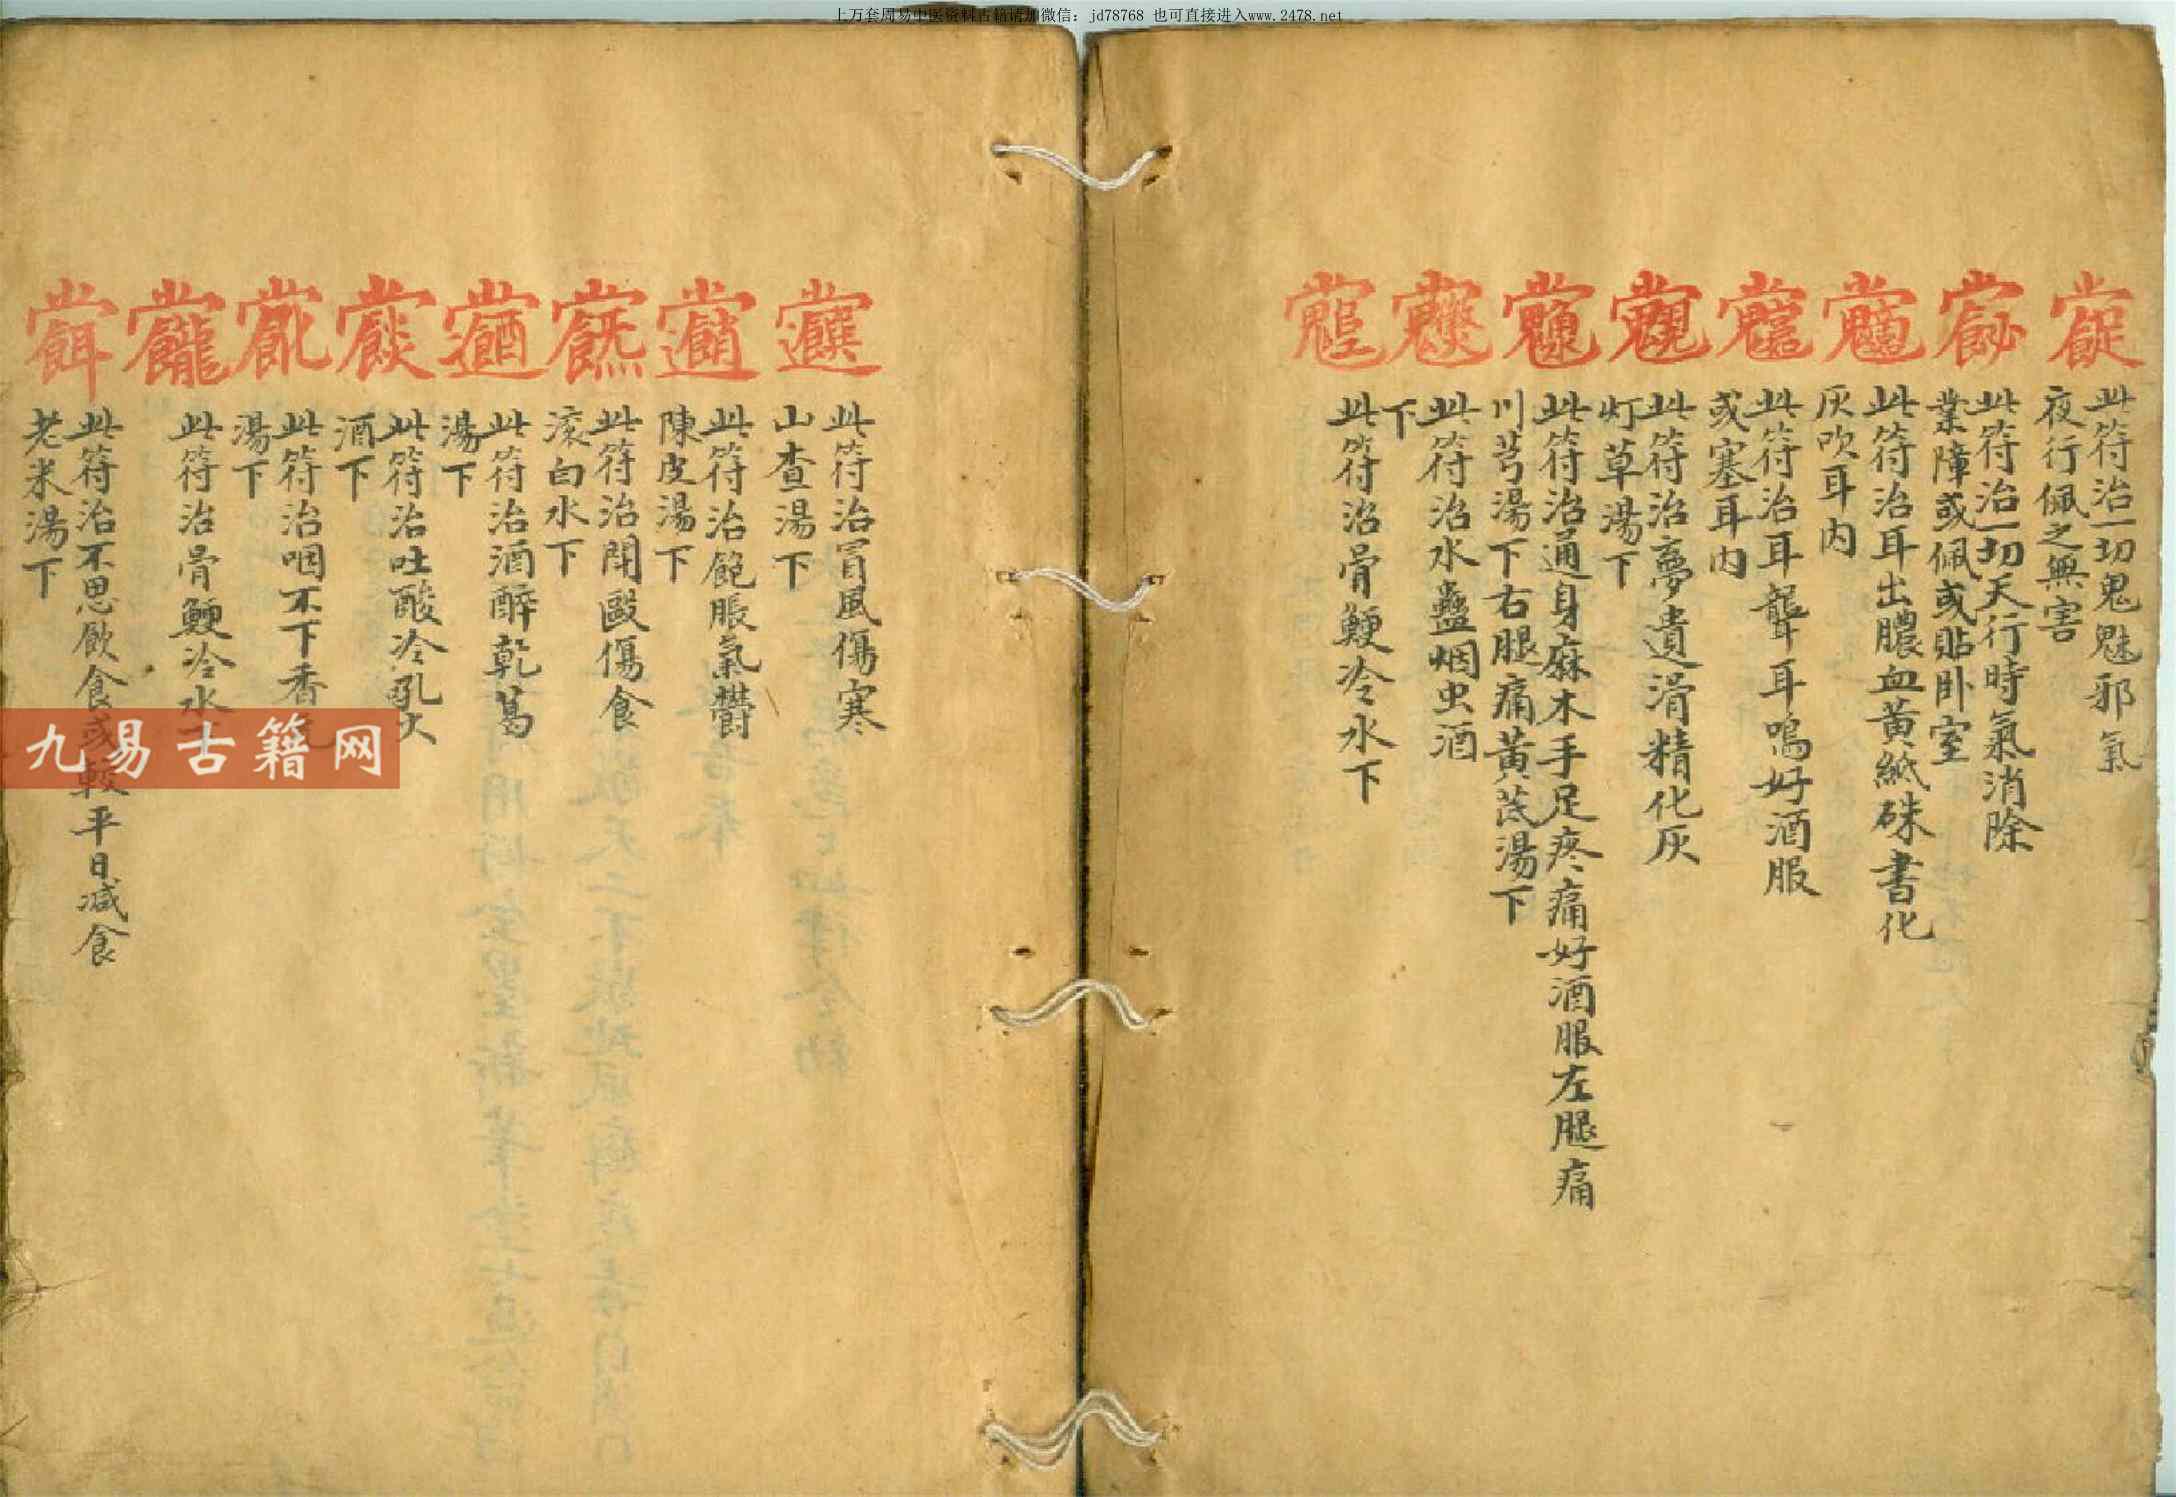 上万套周易中医资料古籍请加微信: jd78768 也可直接进入www.2478.net
此符治一切鬼魅邪氣
夜行佩之無害
此符治一切天行時氣消除
業障或佩或貼卧室
此符治耳出膿血黃紙硃書化
灰吹耳内
此符治耳聾耳鳴好酒服
或塞耳内
此符治夢遺滑精化灰
灯草湯下
此符治通身麻木手足疼痛好酒服左腿痛
川芎湯下右腿痛黃芪湯下
此符治水蠱烟虫酒
下
此符治骨鯁冷水下
此符治冒風傷寒
山查湯下
此符治飽脹氣欝
陳皮湯下
此符治聞毆傷食
滚白水下
此符治酒醉乾葛
湯下
此符治吐酸冷
酒下
此符治咽不下香
湯下
此符治骨鯁冷水
此符治不思飲食或較平日减食
老米湯下
九易古籍网